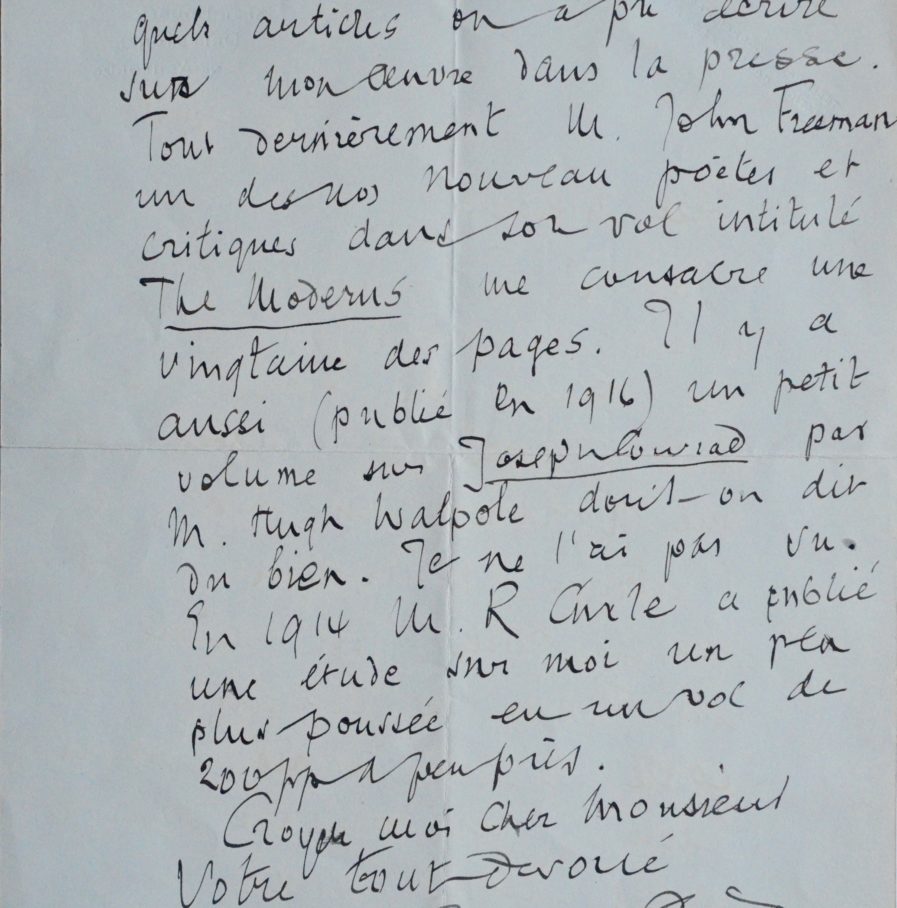 quels articles on a pu écrire
sur mon œuvre dans la presse.
Tout dernièrement M. John Freeman
un des nos nouveau poètes et
critiques dans son vol intitulé
The Moderns me consacre une
vingtaine des pages. Il y a
aussi (publié en 1916) un petit
volume sur Joseph Conrad par
M. Hugh Walpole dont-on dit
du bien. Je ne l'ai pas vu.
En 1914 M. R Curle a publié
une étude sur moi un peu
plus poussée en un vol de
200 pp à peu près.
Croyez moi cher Monsieur
Votre tout dévoué